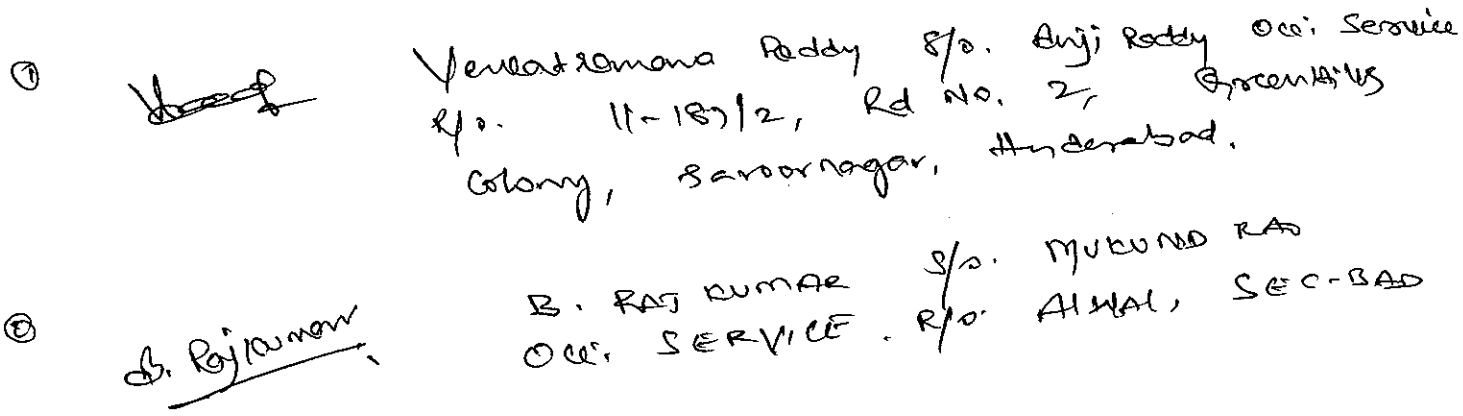 ① Venkatramana Reddy S/o. Anji Reddy Occ: Service
R/o. 11-187/2, Rd No. 2, GreenHills
Colony, Saroornagar, Hyderabad.
② B. Rajkumar B. RAJ KUMAR S/o. MUKUND RAO
Occ: SERVICE. R/o. ALWAL, SEC-BAD